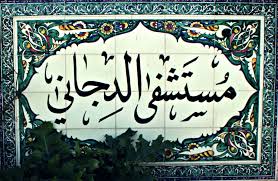 مُستشفى الدجاني